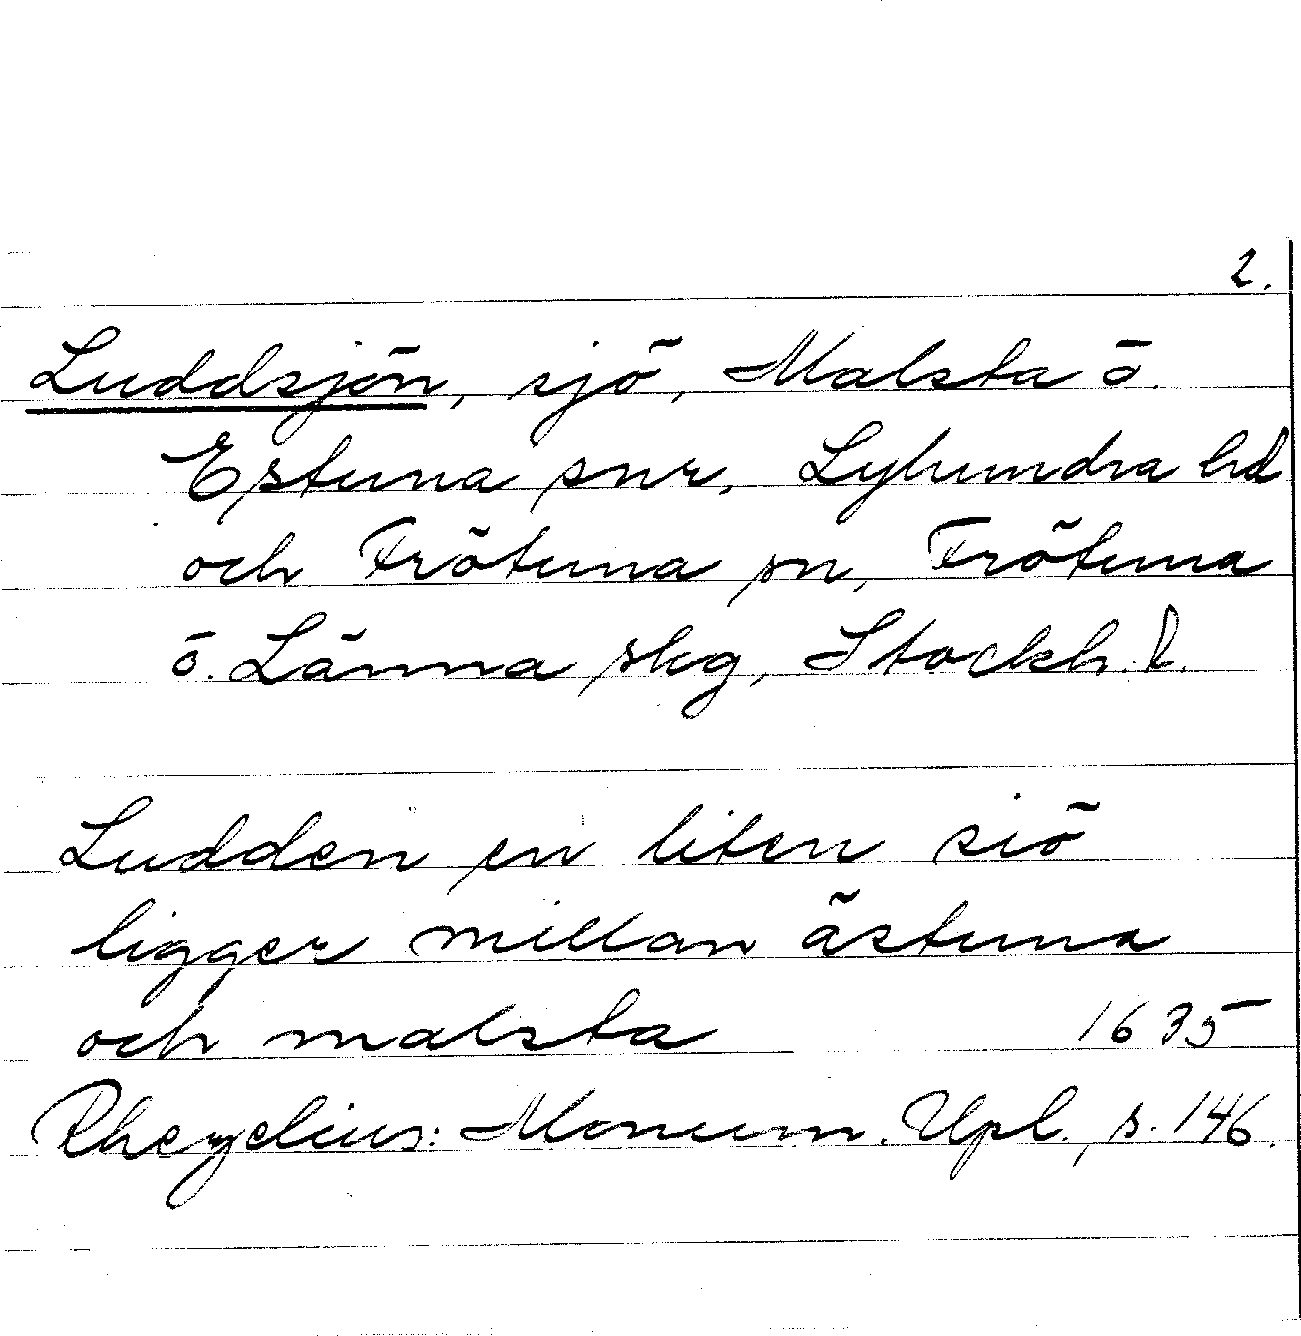 2.
Luddsjön, sjö, Malsta o.
Estuna snr, Lyhundra hd
och Frötuna sn, Frötuna
o. Länna skg, Stockh. l.
Ludden en liten siö
ligger millan ästuna
och malsta 1635
Rhezelius: Monum. Upl., s. 146.